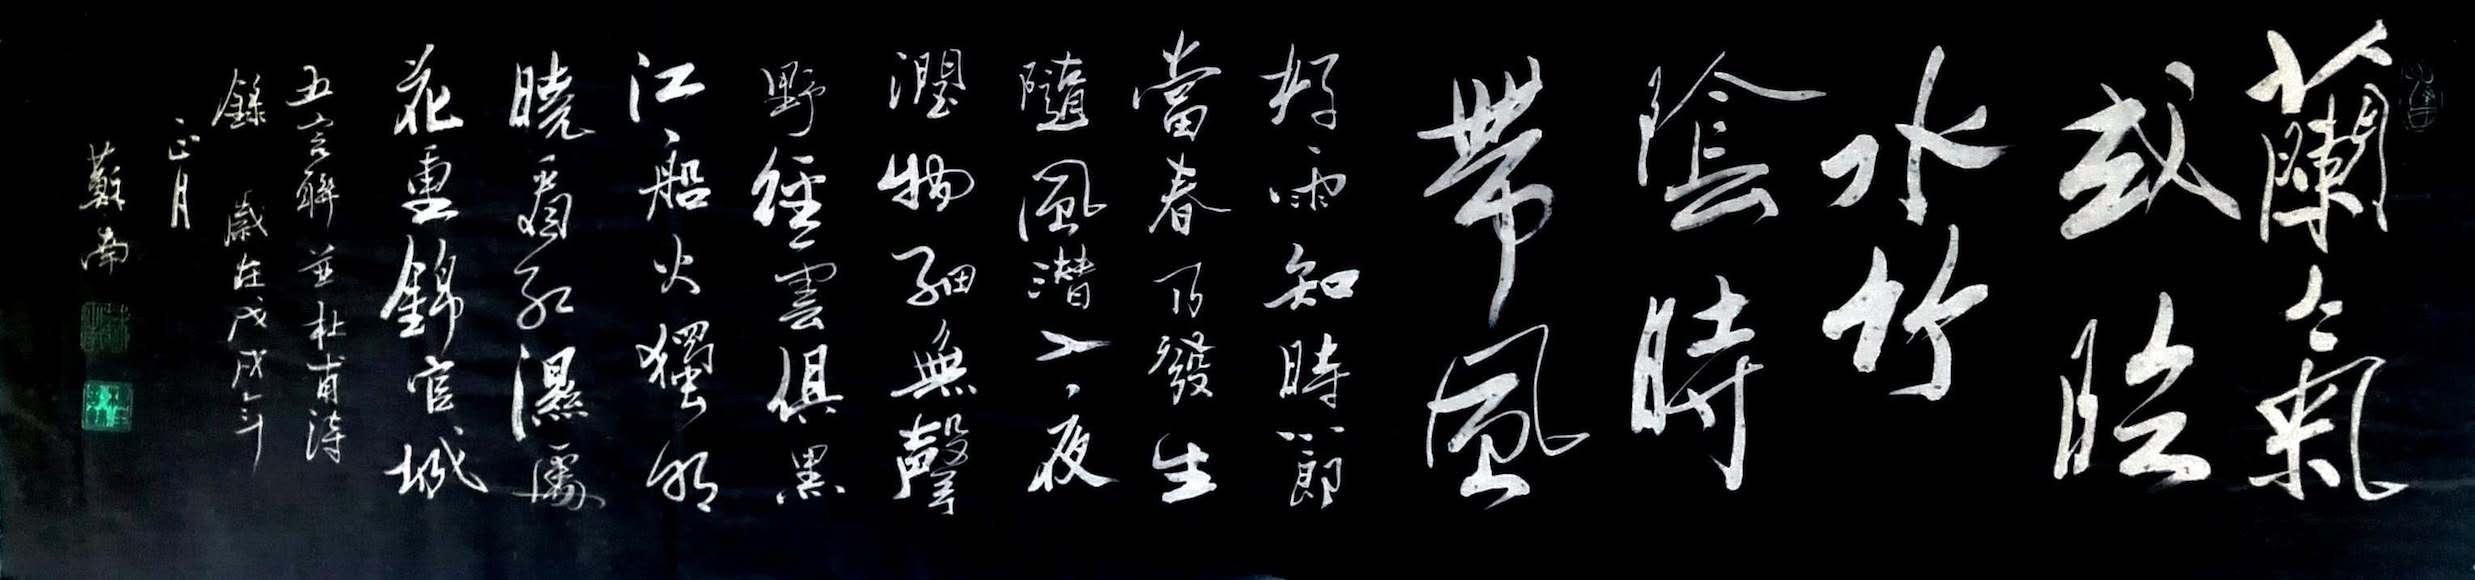 蘭氣
或臨
水竹
陰時
帶風
好雨知時節
當春乃發生
隨風潛入夜
潤物細無聲
野徑雲俱黑
江船火獨明
曉看紅濕處
花重錦官城
五言聯並杜甫詩
錄 歲在戊戌年
正月
蘇南